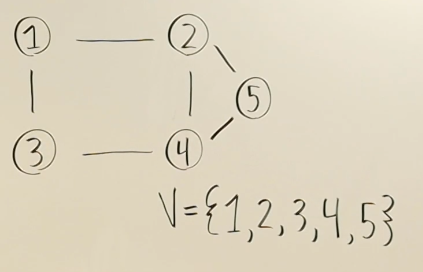 1 2
5
3 4
V={1,2,3,4,5}